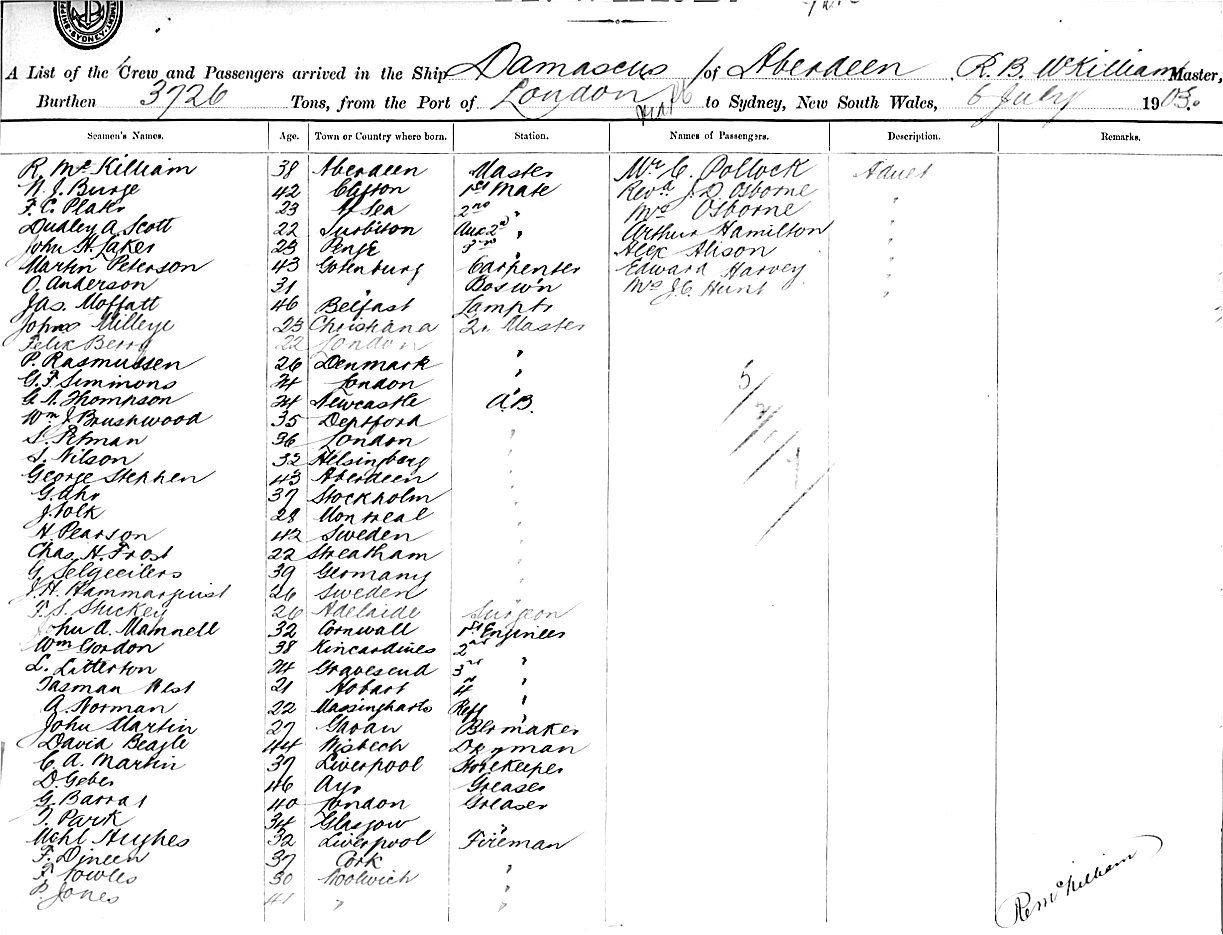 SYDNEY
A List of the Crew and Passengers arrived in the Ship Damascus of Aberdeen R. B. McKilliam Master,
Burthen 3726 Tons, from the Port of London to Sydney, New South Wales, 6 July 1903.
Seamen's Names. Age. Town or Country where born. Station. Names of Passengers. Description. Remarks.
R. Mc Killiam 38 Aberdeen Master Mr C. Pollock Adult
N. J. Burge 42 Clifton 1st Mate Revd J. D. Osborne "
F. C. Plake 23 At Sea 2nd " Mrs Osborne "
Dudley A Scott 22 Surbiton Aux 2d " Arthur Hamilton "
John H. Laker 23 Penge 3rd " Alex Alison "
Martin Peterson 43 Gotenburg Carpenter Edward Harvey "
O. Anderson 31 " Bos'w'n Mrs J. C. Hunt "
Jas. Moffatt 46 Belfast Lamptr
John Milleye 23 Christiana Qr Master
Felix Berry 22 London "
P. Rasmussen 26 Denmark "
G. F. Simmons 24 London "
G. A. Thompson 24 Newcastle A.B.
Wm J. Brushwood 35 Deptford "
S. Petman 36 London "
S. Nilson 32 Helsingberg "
George Stephen 43 Aberdeen "
G. Ahr 37 Stockholm "
J. Volk 28 Montreal "
H Pearson 42 Sweden "
Chas H. Frost 22 Streatham "
G. 39 Germany "
J. H. Hammarquist 26 Sweden "
F. S. Shickey 26 Adelaide Surgeon
John A. Mamnell 32 Cornwall 1st Engineer
Wm Gordon 38 Kincardines 2nd "
L. Litterton 24 Gravesend 3rd "
Tasman West 21 Hobart 4 "
A. Norman 22 Refr "
John Martin 27 Govan Blrmaker
David Beagle 44 Wisbech Dkyman
C. A. Martin 37 Liverpool Storekeeper
D. Geber 46 Ayr Greaser
G. Barrat 40 London Greaser
T. Park 34 Glasgow "
Mchl Hughes 32 Liverpool Fireman
F. Dineen 37 Cork "
F Fowles 30 Woolwich "
P. Jones 41 " "
R B McKilliam